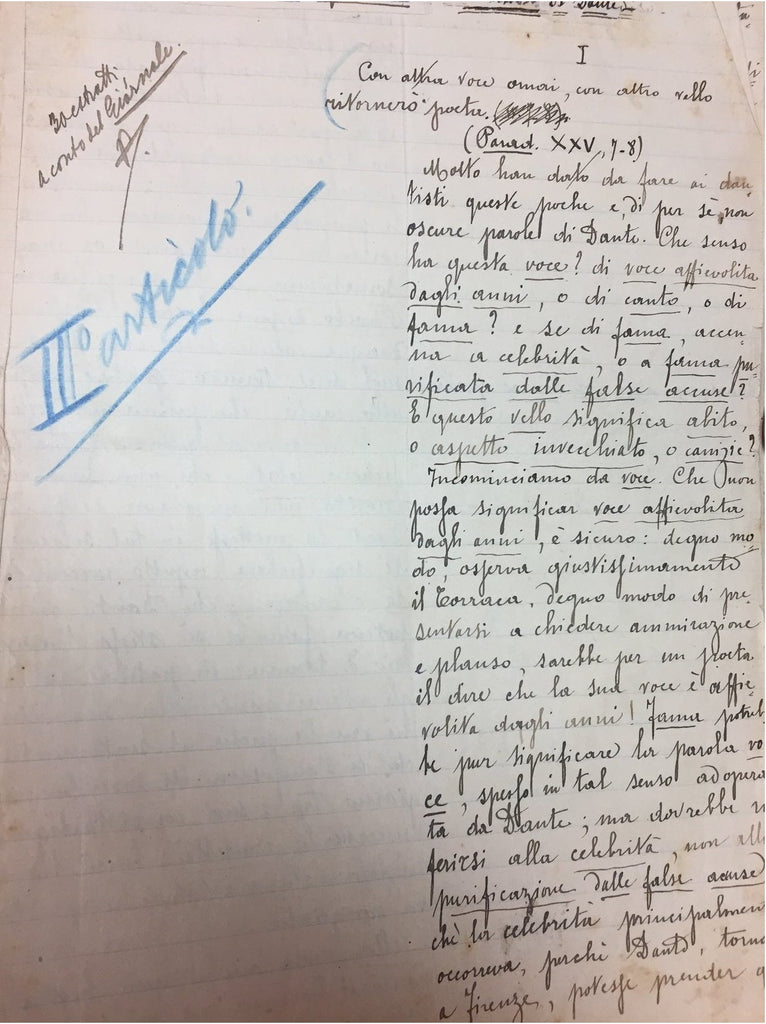 di Dante
30 estratti
a conto del Giornale.
IIIº articolo.
I
Con altra voce omai, con altro vello
ritornerò poeta.
(Parad. XXV, 7-8)
Molto han dato da fare ai dan-
tisti queste poche e, di per sè, non
oscure parole di Dante. Che senso
ha questa voce? di voce affievolita
dagli anni, o di canto, o di
fama? e se di fama, accen-
na a celebrità, o a fama pu-
rificata dalle false accuse?
E questo vello significa abito,
o aspetto invecchiato, o canizie?
Incominciamo da voce. Che non
possa significar voce affievolita
dagli anni, è sicuro: degno mo-
do, osserva giustissimamente
il Torraca, degno modo di pre-
sentarsi a chiedere ammirazione
e plauso, sarebbe per un poeta
il dire che la sua voce è affie-
volita dagli anni! Fama potreb-
be pur significare la parola vo-
ce, spesso in tal senso adopera
ta da Dante; ma dovrebbe ri
ferirsi alla celebrità, non all
purificazione dalle false accuse
chè la celebrità principalmen
occorreva, perchè Dante, torna
a Firenze, potesse prender